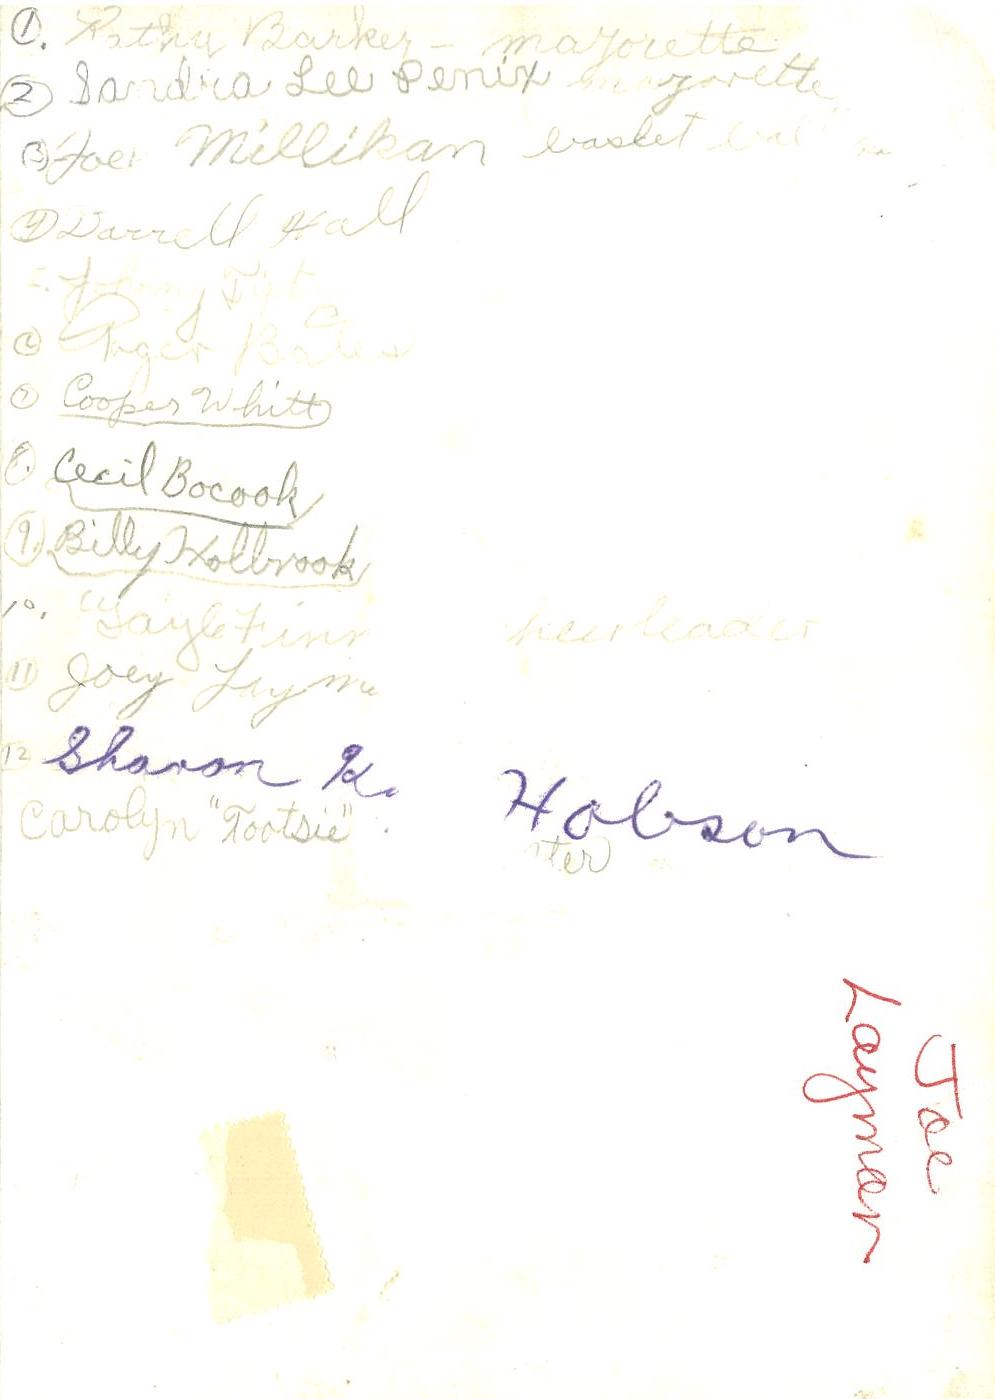 1. Kathy Barker - majorette
2 Sandra Lee Penix majorette
3 Joe Millikan basket
4 Darrell Hall
Johnny
6 Roger Bates
7 Cooper Whitt
8. Cecil Bocook
9. Billy Holbrook
10. "Gayle Finn
11 Joey
12 Sharon K. Hobson
Carolyn "Tootsie"
Joe
Laymar